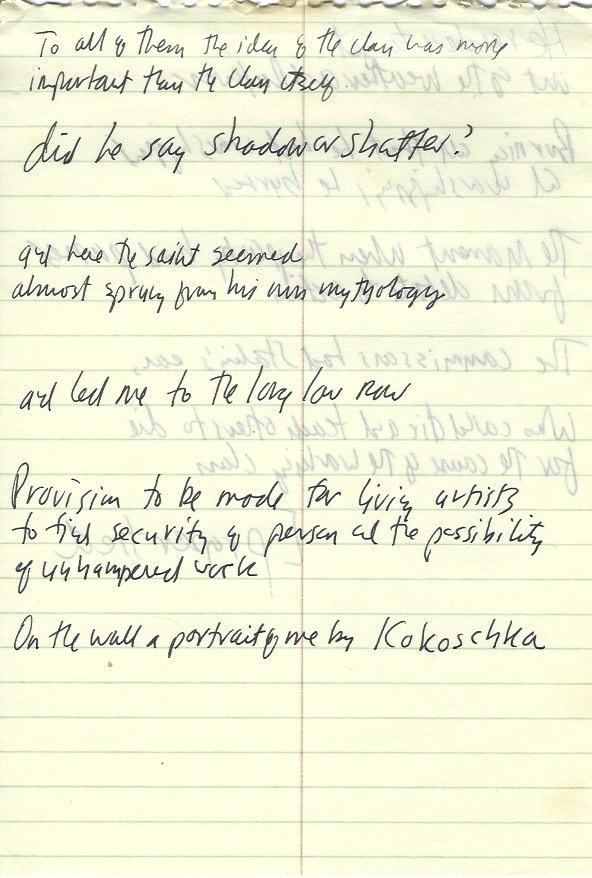 To all of them the idea of the clan was more
important than the clan itself.
did he say shadow or shatter?
and here the saint seemed
almost sprung from his own mythology
and led me to the long low row
Provision to be made for living artists
to find security of person and the possibility
of unhampered work
On the wall a portrait of me by Kokoschka